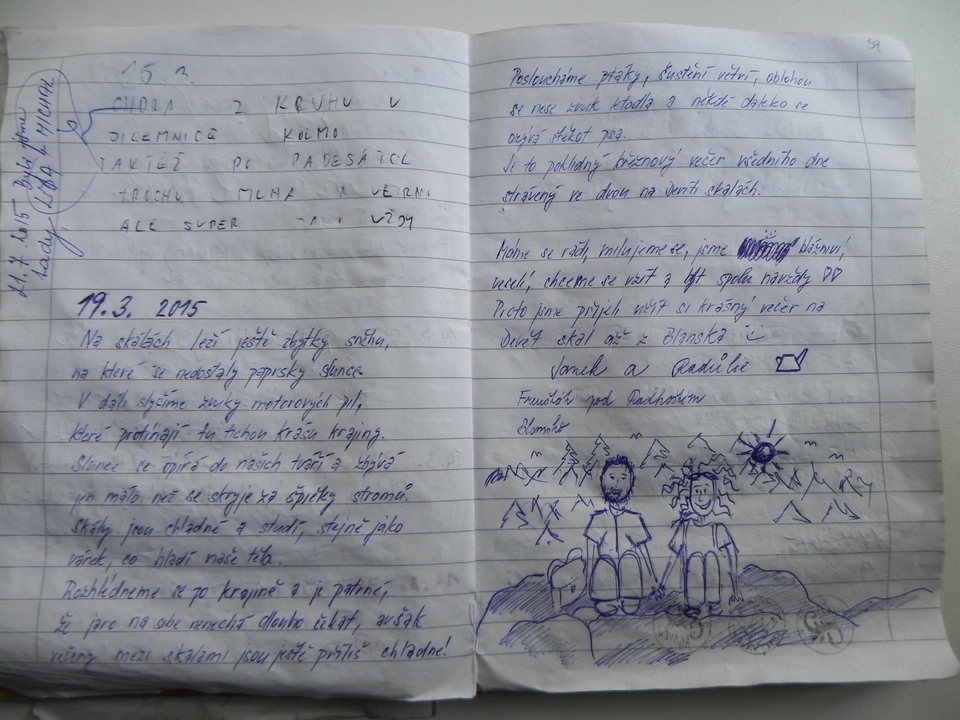 21.7.2015 Byli jsme
tady, LÍDA a MICHAL
15. 3.
Z KRUHU V
JILEMNICE KOLMO
TAKTÉŽ PO PADESÁTCE
TROCHU MLHA
ALE SUPER VŽDY
19.3. 2015
Na skálách leží ještě zbytky sněhu,
na které se nedostaly paprsky slunce.
V dáli slyčíme zvuky motorových pil,
které protínají tu tichou krásu krajiny.
Slunce se opírá do našich tváří a zbývá
jen málo než se skryje za špičky stromů.
Skály jsou chladné a studí, stejně jako
vánek, co hladí naše těla.
Rozhlédneme se po krajině a je patrné,
že jaro na sebe nenechá dlouho čekat, avšak
večery mezi skálami jsou ještě příliš chladné!
39
Posloucháme ptáky, šustění větví, oblohou
se nese zvuk letadla a někde daleko se
ozývá štěkot psa.
Je to poklidný březnový večer všedního dne
strávený ve dvou na Devíti skalách.
Máme se rádi, milujeme se, jsme blázniví,
veselí, chceme se vzít a být spolu navždy ♡♡
Proto jsme přijeli užít si krásný večer na
Devět skal až z Blanska :)
a Radůlie
Frenštát pod Radhoštěm
Blansko